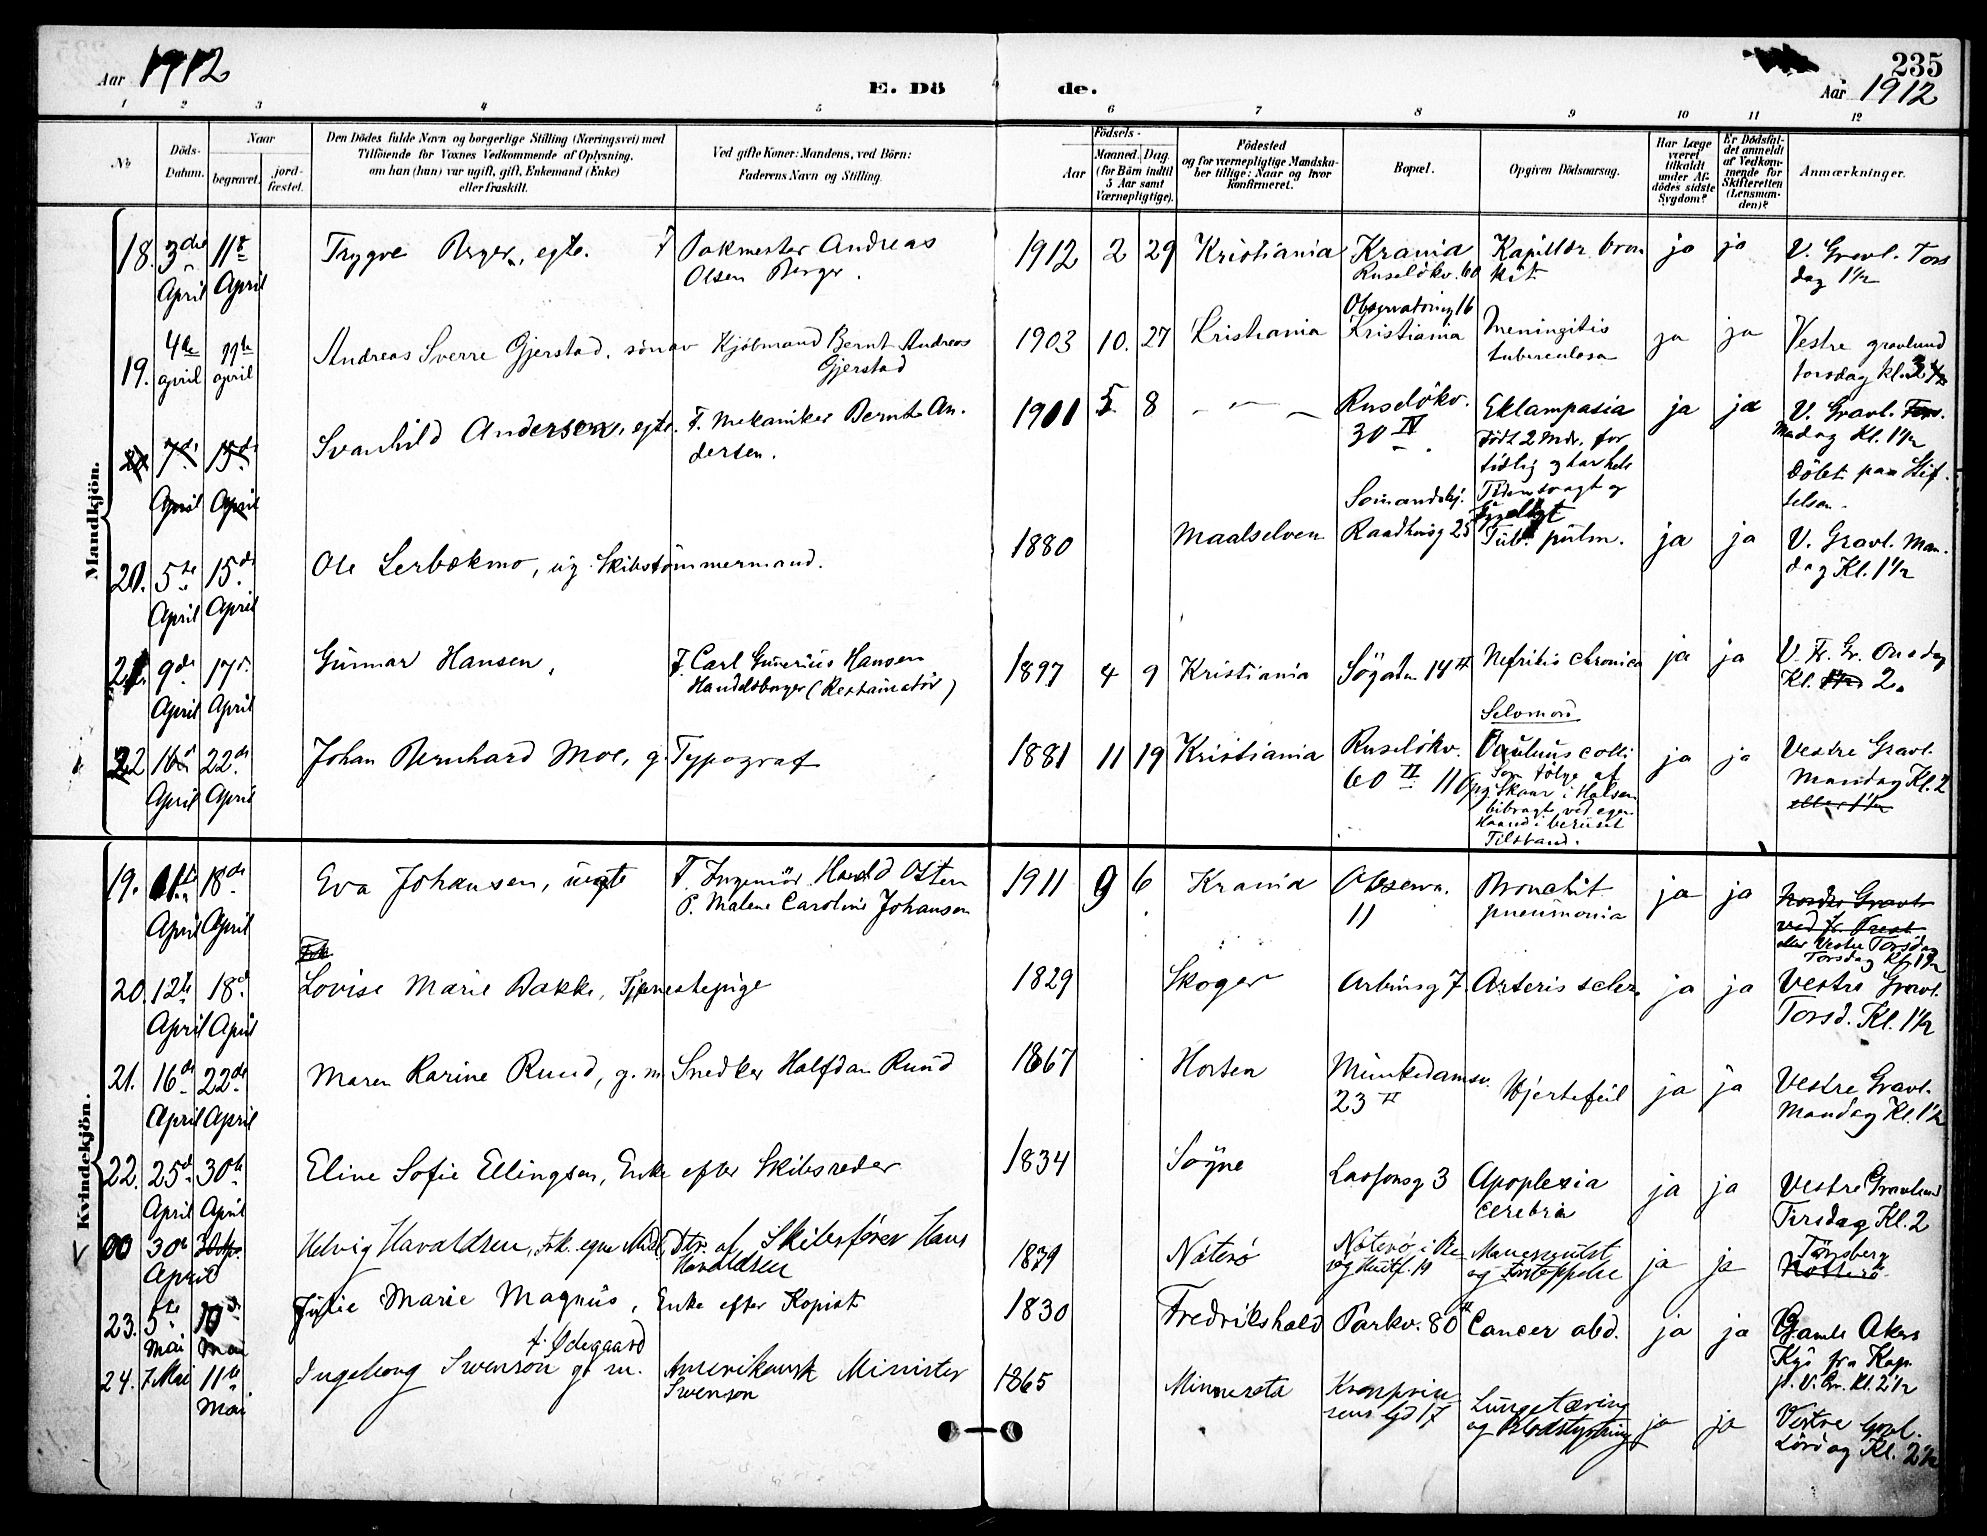 Aar 1912
E. Dö
de.
235
Aar 1912
1 2 3 4 5 6 7 8 9 10 11 12
No
Döds-
Datum.
Naar
begravet.
jord-
fæstet.
Den Dödes fulde Navn og borgerlige Stilling (Næringsvei) med
Tilföiende for Voxnes Vedkommende af Oplysning,
om han (hun) var ugift, gift, Enkemand (Enke)
eller fraskilt.
Ved gifte Koner: Mandens, ved Börn:
Faderens Navn og Stilling.
Födsels-
Aar
Maaned.
Dag.
(for Börn indtil
5 Aar samt
Værnepligtige).
Födested
og for værnepligtige Mandska-
ber tillige: Naar og hvor
konfirmeret.
Bopæl.
Opgiven Dödsaarsag.
Har Læge
været
tilkaldt
under Af-
dödes sidste
Sygdom?
Er Dödsfal-
det anmeldt
af Vedkom-
mende for
Skifteretten
(Lensman-
den)?
Anmærkninger.
Mandkjön.
18. 3die April 11te April Trygve Berger, egte. F Pakmester Andreas
Olsen Berger.
1912 2 29 Kristiania Krania
Ruselökv. 60
Kapillær bron
kit
ja ja V. Gravl. Tors
dag 1½
19. 4de april 11te april Andreas Sverre Gjerstad, sön av Kjöbmand Bernt Andreas
Gjerstad
1903 10. 27 Kristiania Observatoriug 16
Kristiania
Meningitis
tuberculosa
ja ja Vestre gravlund
torsdag kl.
7de April 15de April Svanhild Andersen, egte. F. Mekaniker Bernt An.
dersen.
5 8 — " — Ruselökv.
30 IV
Eklampasia
Födt 2 Mdr. for
tidlig
ja ja V. Gravl.
Mandag Kl. 1½
Döbt paa Stif.
telsen.
20. 5te April 15de April Ole Lerbekmo, ug. Skibstömmermand.
1880 Maalselven
Raadhusg 25 Tub. pulm. ja ja V. Gravl. Man.
dag Kl. 1½
21. 9de April 17de April Gunnar Hansen, F. Carl Gunerius Hansen
Handelsborger (Restauratör)
1897 4 9 Kristiania Sögaten 14 II Nefritis chronica ja ja V. Fr. Gr. Onsdag
Kl. 2.
22 16de April 22de April Johan Bernhard Moe, g. Typograf
1881 11 19 Kristiania Ruselökv.
60 II 11 Opg
Selvmord
Vulnus colli
Som Fölge af
Skaar i Halsen
bibragt ved egen
Haand i beruset
Tilstand.
ja ja Vestre Gravl.
Mandag Kl. 2
eller 1½
Kvindekjön.
19. April 18de April Eva Johansen, uegte F. Ingeniör Harald Osten
P. Malene Caroline Johansen
1911 9 6 Krania Observ.
11
Bronchit
pneumonia
ja ja Nordre Gravl.
eller Vestre Torsdag
Torsdag Kl. 1½
Frk
20. 12te April 18de April Lovise Marie Bakke, Tjenestepige
1829 Skoger Arbinsg 7. Arteris scler. ja ja Vestre Gravl.
Torsd. Kl. 1½
21. 16de April 22de April Maren Karine Ruud, g. m. Snedker Halfdan Ruud
1867 Horten Munkedamsv.
23 II
Hjertefeil ja ja Vestre Gravl.
Mandag Kl. 1½
22. 25de April 30te April Eline Sofie Ellingsen, Enke efter Skibsreder
1834 Sögne Lassonsg 3 Apoplexia
cerebria
ja ja Vestre Gravlund
Tirsdag Kl. 2
00 30te April Helvig Havaldsen, Frk. egne Midl. Dtr. af Skibsförer Hans
Havaldsen
1839 Nöterö
ja ja Tönsberg
Nötterö
23. 5te Mai 10de Mai Julie Marie Magnus, Enke efter Kopist
1830 Fredrikshald Parkv. 80 II Cancer abd. ja ja Gamle Akers
Kgd fra Kap.
p. V. Gr. Kl. 2½
24. 7 Mai 11te Mai f. Ödegaard
Ingeborg Swenson g. m. Amerikansk Minister
Swenson
1865 Minnersta Kronprin
sens Gd 17
Lungetæring
og Blodstyrtning
ja ja Vestre Gravl.
Lördag Kl. 2½